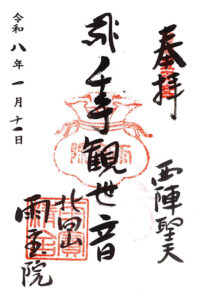 奉拝
西陣聖天
千手観世音
北向山
雨宝院
令和八年一月十一日